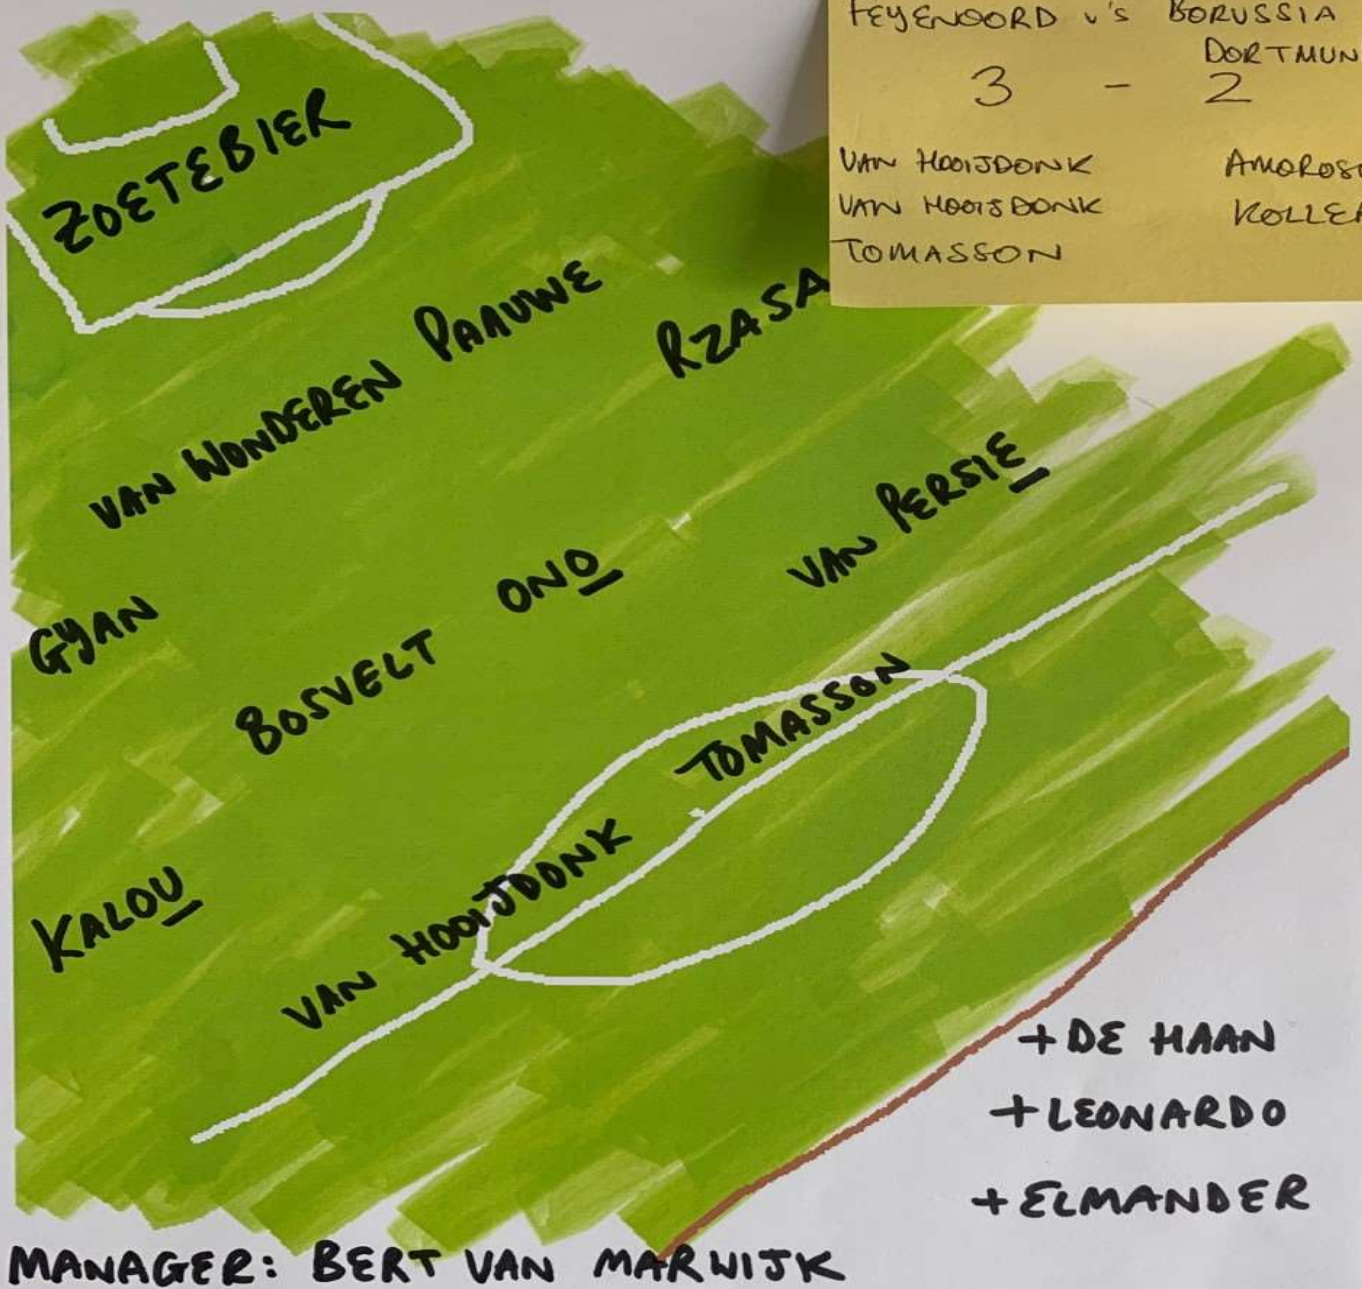 FEYENOORD v's BORUSSIA
DORTMUN
3 - 2
VAN HOOIJDONK AMOROS
VAN HOOIJDONK KOLLE
TOMASSON
ZOETEBIER
VAN WONDEREN PAAUWE
RZASA
GYAN
BOSVELT
ONO
VAN PERSIE
KALOU
VAN HOOIJDONK
TOMASSON
+ DE HAAN
+ LEONARDO
+ ELMANDER
MANAGER: BERT VAN MARWIJK